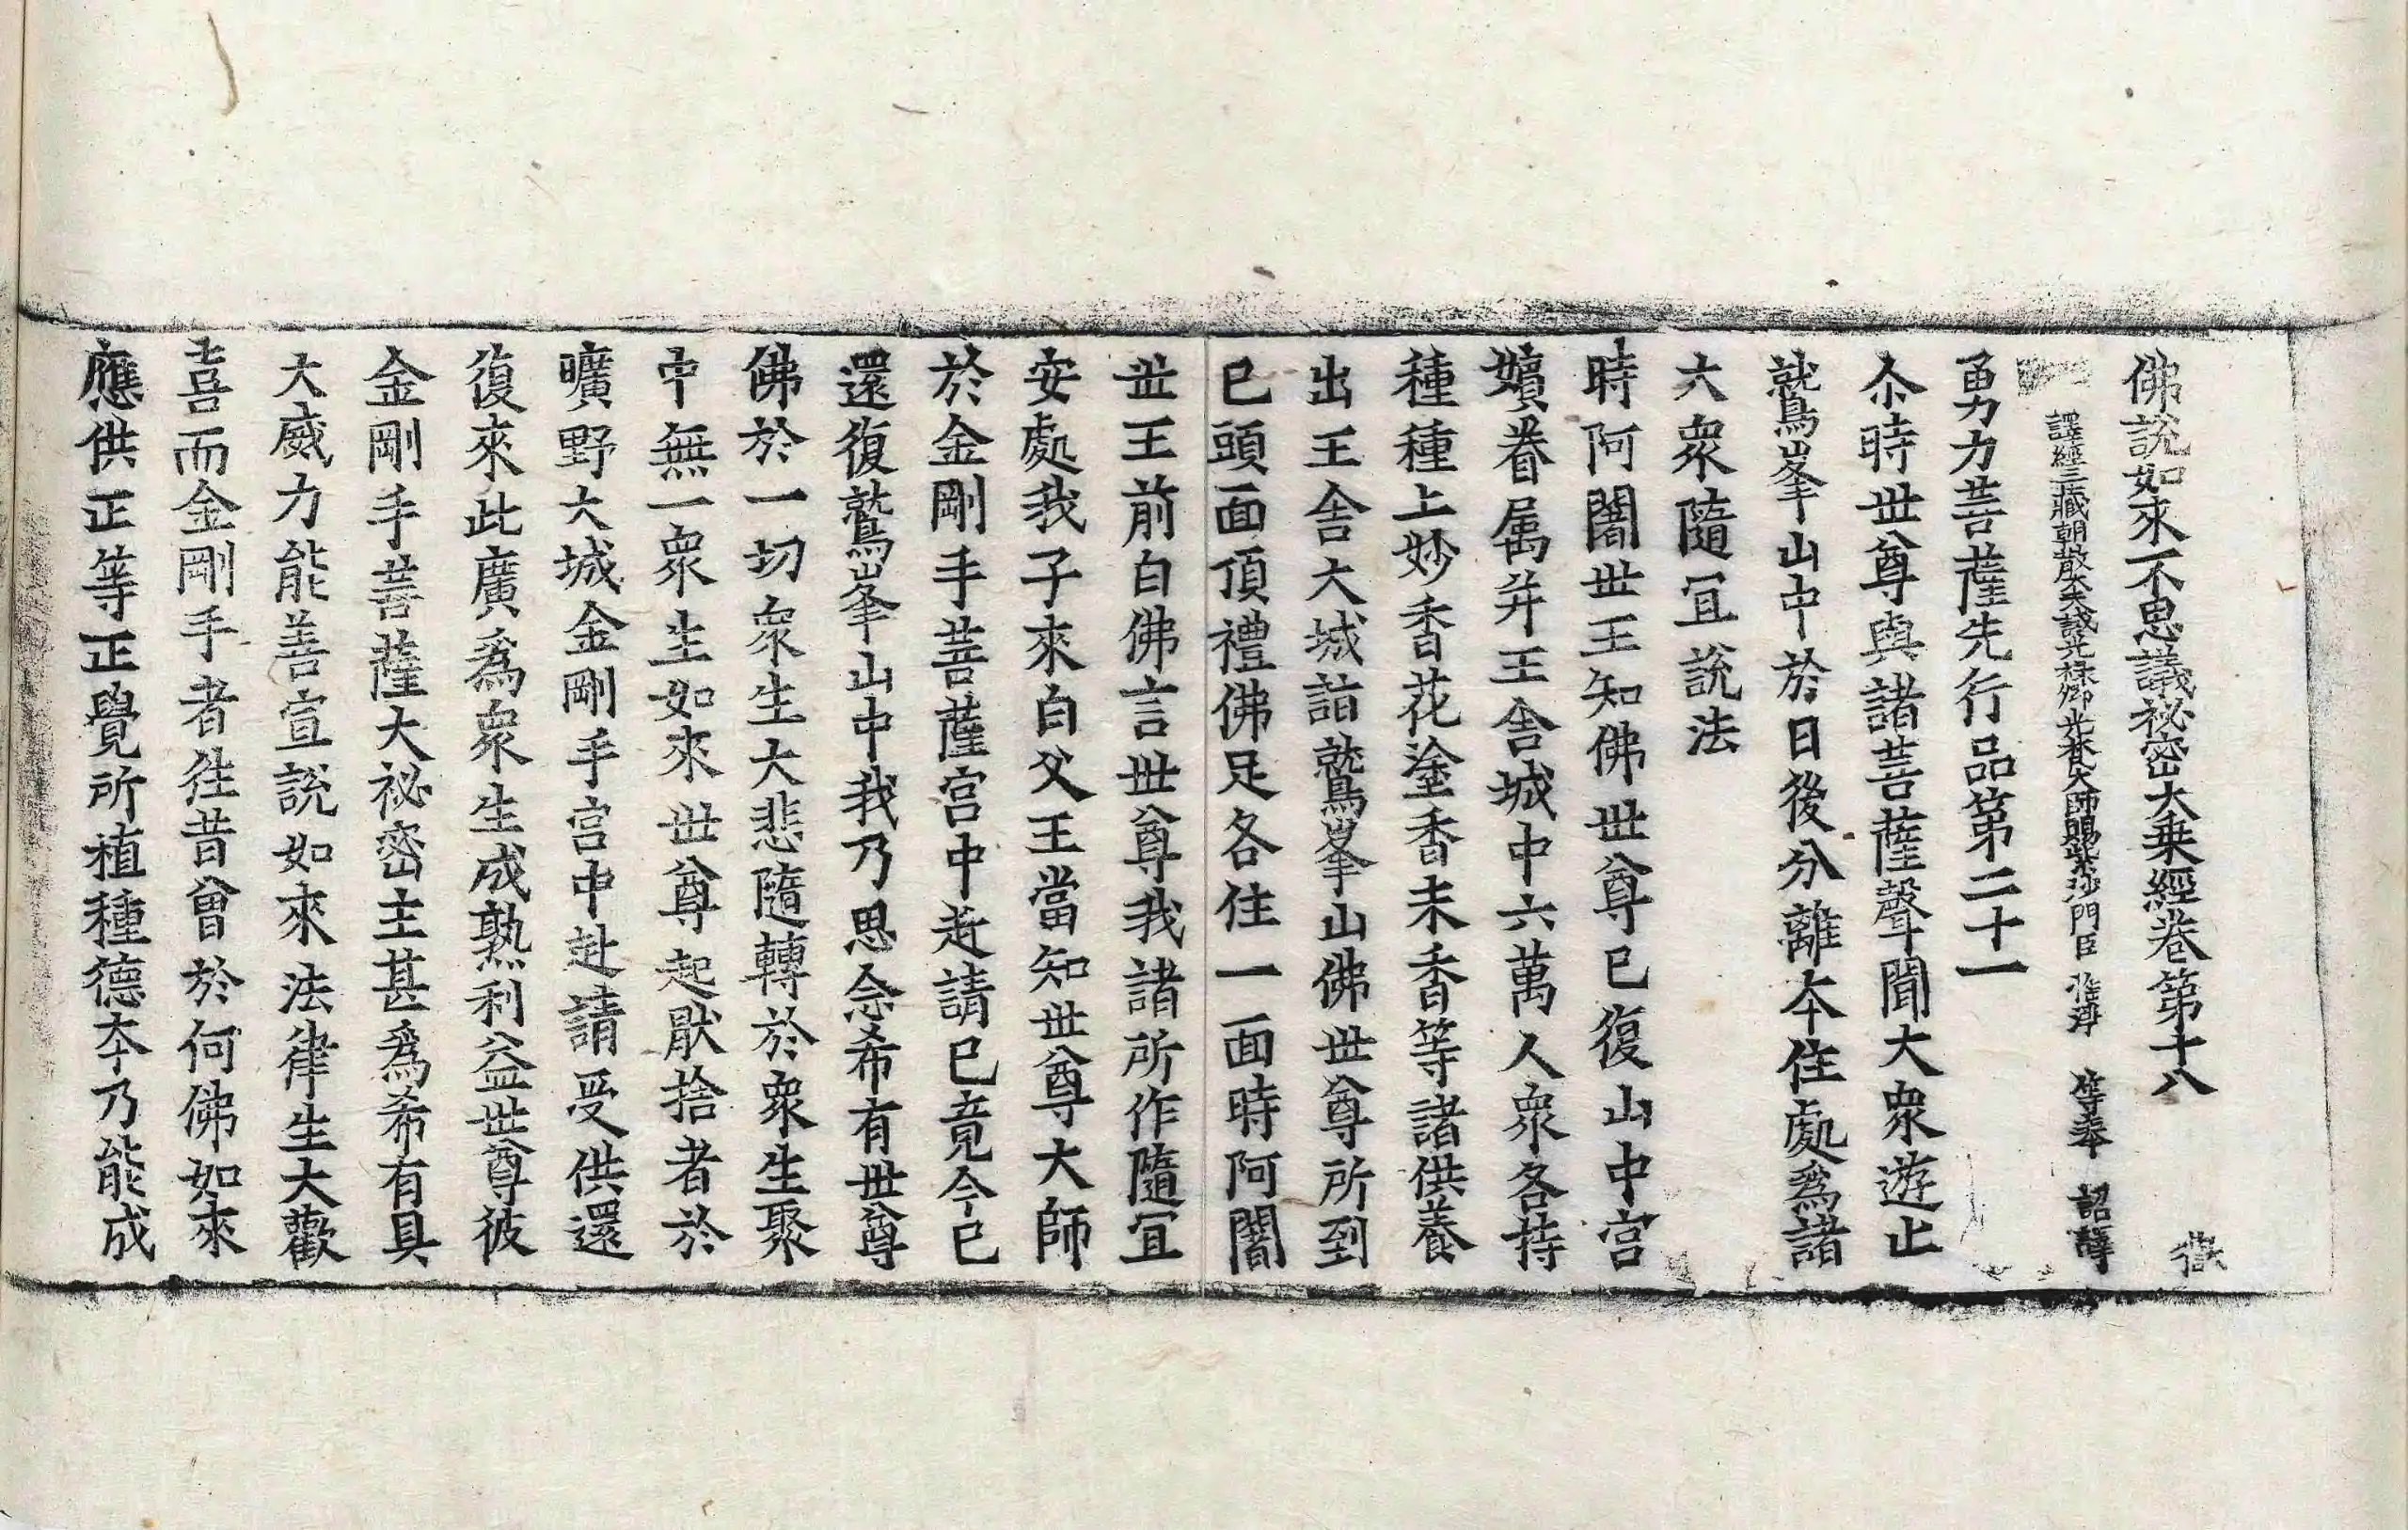 佛說如來不思議祕密大乗經卷第十八
譯經三藏朝散大夫試光祿卿光梵大師賜紫沙門臣 惟淨 等奉 詔譯
勇力菩薩先行品第二十一
尒時世尊與諸菩薩聲聞大衆遊止
就鷲峯山中於日後分離夲住處爲諸
大衆隨冝說法
時阿闍世王知佛世尊已復山中宮
嬪眷属并王舎城中六萬人衆各持
種種上妙香花塗香末香等諸供養
出王舎大城詣鷲峯山佛世尊所到
已頭面頂禮佛足各住一面時阿闍
世王前白佛言世尊我諸所作隨冝
安處我子來白父王當知世尊大師
於金剛手菩薩宮中赴請已竟今已
還復鷲峯山中我乃思念希有世尊
佛於一切衆生大悲隨轉於衆生聚
中無一衆生如來世尊起猒捨者於
曠野大城金剛手宮中赴請受供還
復來此廣爲衆生成熟利益世尊彼
金剛手菩薩大祕密主甚爲希有具
大威力能善宣說如來法律生大歡
喜而金剛手者往昔曾於何佛如來
應供正等正覺所植種德夲乃能成